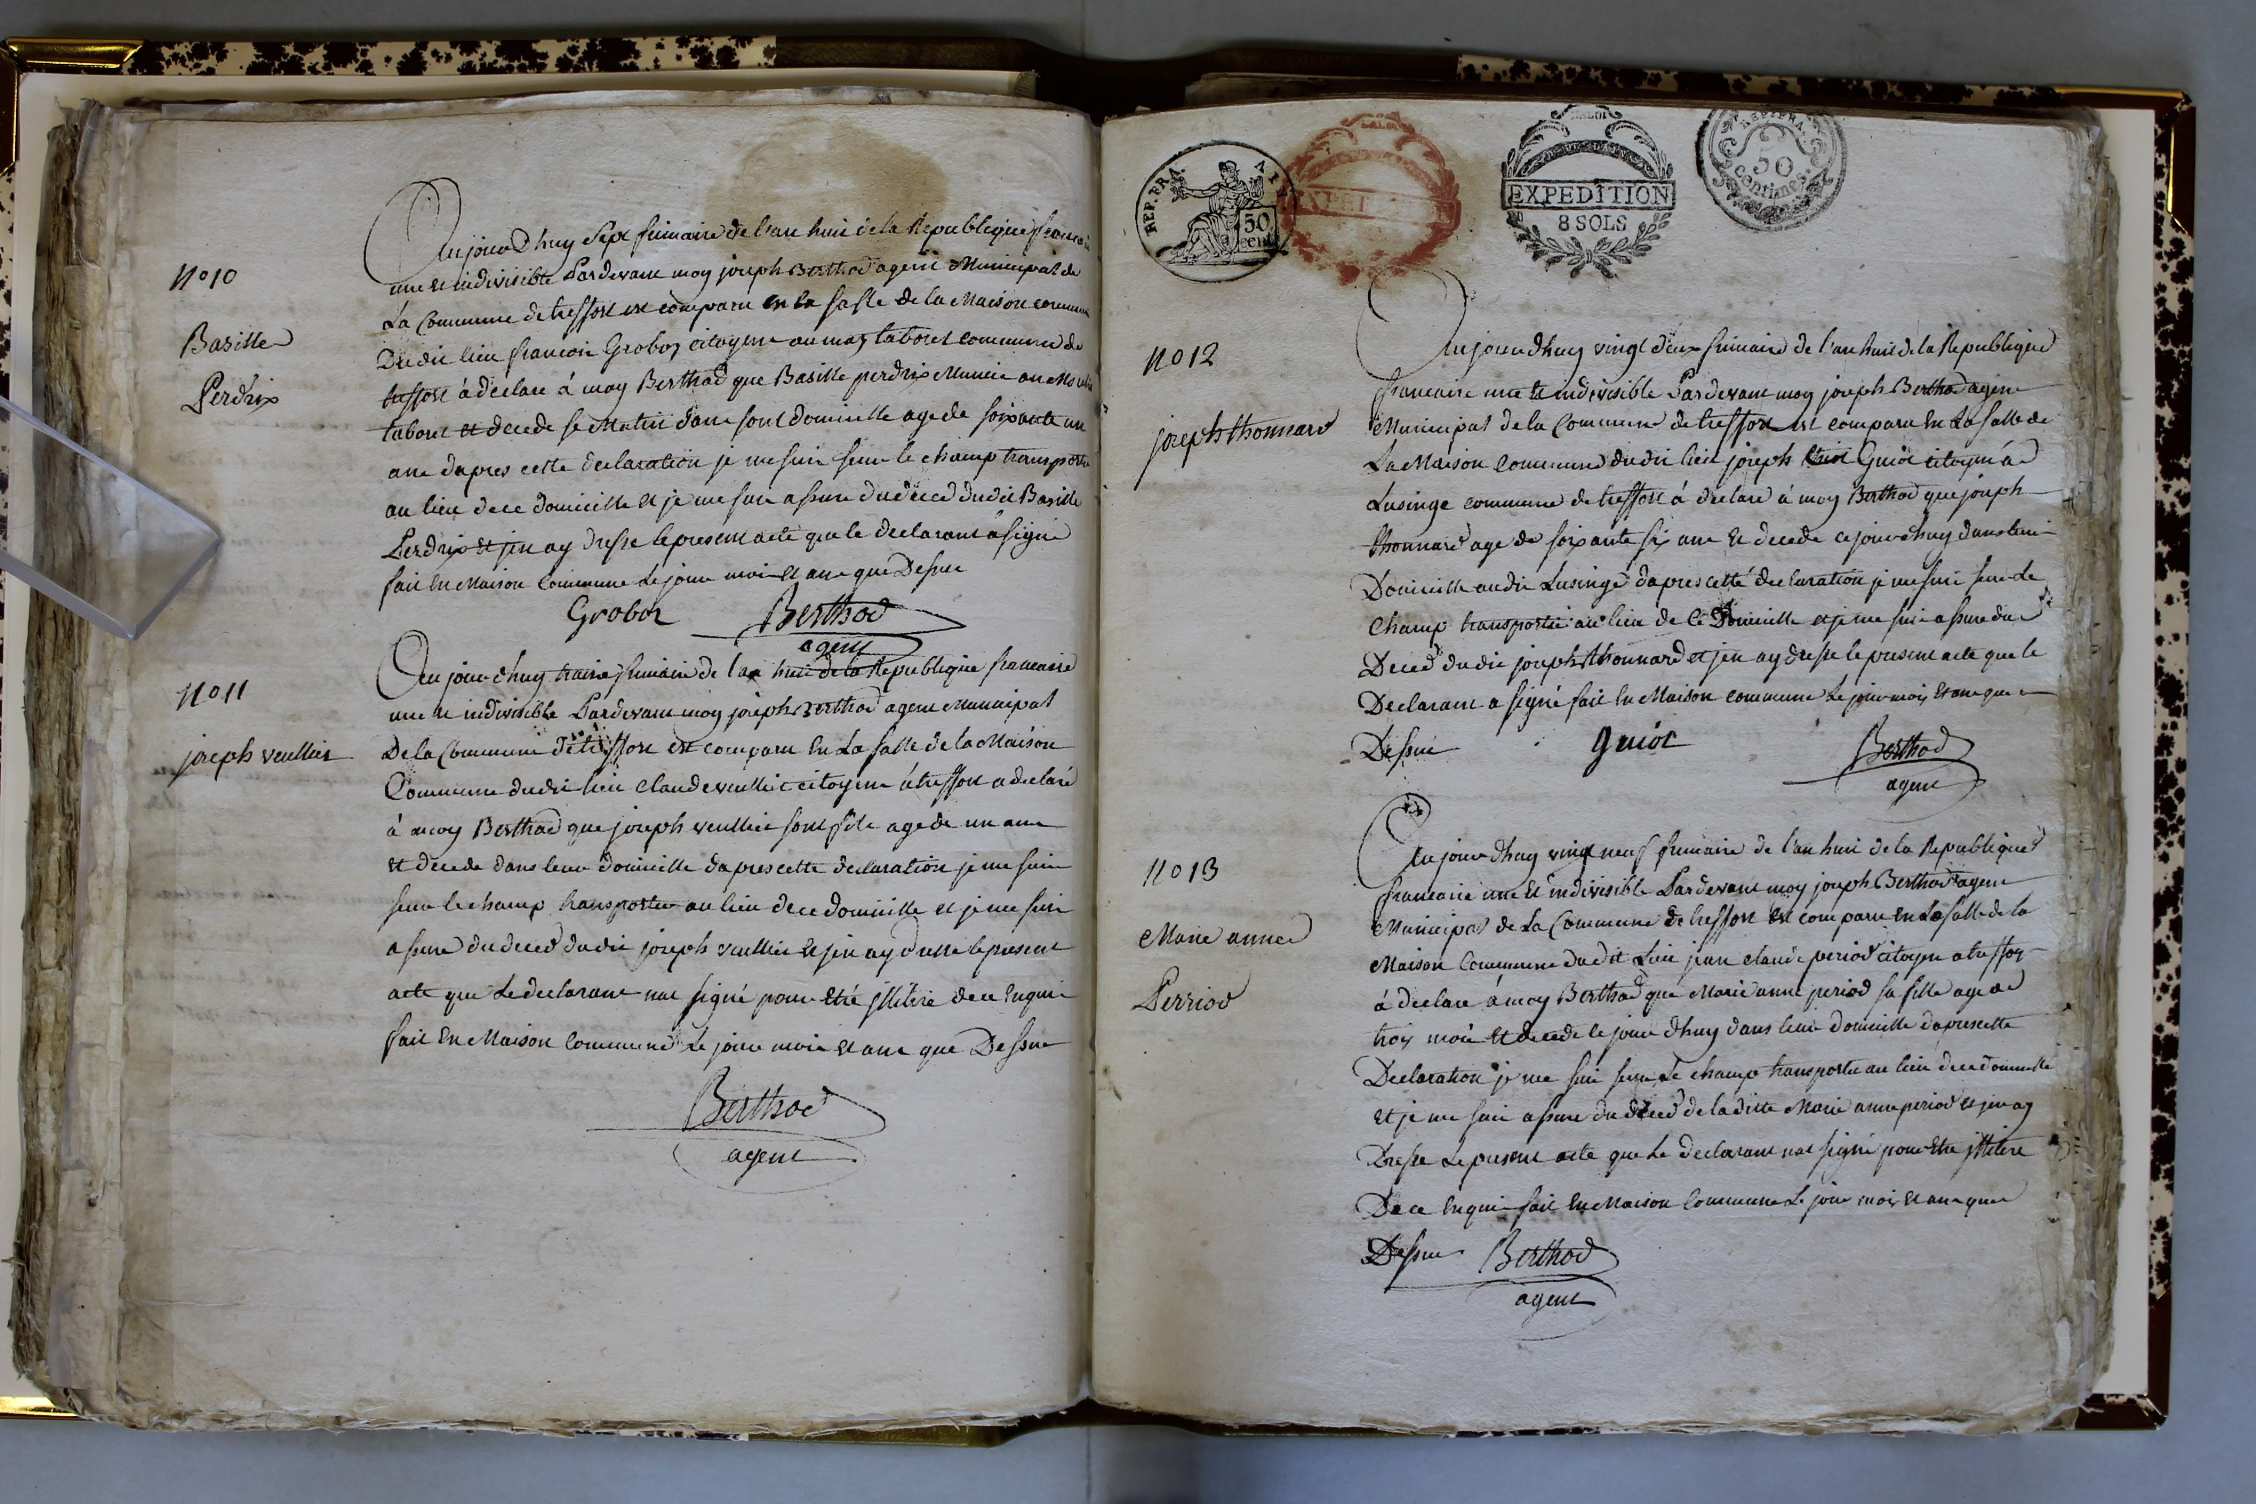 N° 10
Basille
Perdrix
Aujourdhuy Sept frimaire de l'an huit de la Republique francaise
une et indivisible Pardevant moy joseph Berthod agent Municipal de
La Commune de treffort est comparu en la salle de la Maison commune
Dudit lieu francois Groboz citoyen au mas tabouret commune de
treffort à declare à moy Berthod que Basille perdrix Munier au Moulin
tabouret et decede se Matin dans sont domicille age de soixante un
ans dapres cette declaration je me suis sur le champ transporte
au lieu dece domicille et je me suis assure du deced dudit Basille
Perdrix et jen ay dresse lepresent acte que le declarant à signé
fait en Maison Commune Le jour mois et ans que Dessus
Groboz Berthod
agent
N° 11
joseph veuillet
Aujourdhuy traize frimaire de lan huit de la Republique francaise
une et indivisible Pardevant moy joseph Berthod agent Municipal
De la Commune de treffort est comparu En La salle de la Maison
Commune dudit lieu Claude veuillet citoyen à treffort a declaré
à moy Berthod que joseph veuillet sont fils age de un ans
et decede dans leur domicille dapres cette declaration je me suis
sur le champ transporter au lieu dece domicille et je me suis
assure du deced dudit joseph veuillet et jen ay dresse lepresent
acte que Le declarant nat signé pour etre jllitére dece Enquis
fait En Maison Commune Le jour mois et ans que Dessus
Berthod
agent
REP. FRA.
50
cent
EXPEDITION
EXPEDITION
8 SOLS
REP. FRA.
50
centimes
N° 12
joseph thonnard
Aujourdhuy vingt deux frimaire de l'an huit de la Republique
francaise une et indivisible Pardevant moy joseph Berthod agent
Municipal de la Commune de treffort est comparu En La salle de
La Maison Commune dudit lieu joseph Guiot citoyen á
Lusinge commune de treffort à declare à moy Berthod que joseph
thonnard age de soixante six ans et decede cejourdhuy dans leur
Domicille audit Lusinge dapres cette declaration je me suis sur le
Champ transporté au lieu de ce Domicille et je me suis assure du
Deced dudit joseph thonnard et jen ay dresse le present acte que le
Declarant a signé fait En Maison commune Le jour mois et ans que
Dessus guiot Berthod
agent
N° 13
Marie anne
Perriod
Aujourdhuy vingt neuf frimaire de l'an huit de la Republique
francaise une et indivisible Pardevant moy joseph Berthod agent
Municipal de La Commune de treffort est comparu En La salle de la
Maison Commune dudit Lieu jean claude period citoyen a treffort
à declare à moy Berthod que Marie anne period sa fille age de
trois mois et decede le jour dhuy dans leur domicille dapres cette
Declaration je me suis sur Le champ transporte au lieu dece domicille
et je me suis assure du deced de laditte Marie anne period et jen ay
Dresse Le present acte que Le declarant nat signé pour etre jllitere
De ce Enquis fait En Maison Commune Le jour mois et ans que
Dessus Berthod
agent